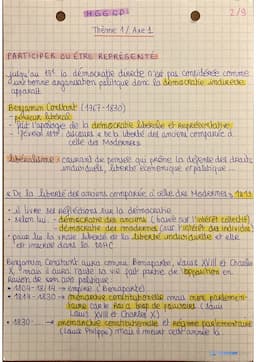 H G G S P
2/9
Thème 1 / Axe 1.
PARTICIPER OU ÊTRE REPRÉSENTÉ
la démocratie directe n'est pas considérée comme
une bonne organisation politique donc la démocratie indirecte
apparaît
Benjamin Constant (1767-1830)
- penseur libéral
- fait l'apologie de la démocratie libérale et représentative
- février 1819 discours « De la liberté des anciens comparée à
celle des Modernes »
libéralisme : courant de pensée qui prône la défense des droits
individuels, liberté économique et politique ...
« De la liberté des anciens comparée à celle des Modernes » 1819
- il livre ses réflexions sur la démocratie
- selon lui - démocratie des anciens (basée sur l'intérêt collectif)
- démocratie des modernes (sur l'intérêt des individus)
- pour lui la vraie liberté est la liberté individuelle et elle
est inscrite dans la DDHC
Benjamin Constant aura connu Bonaparte, Louis XVIII et Charles
X mais il aura toute sa vie fait partie de l'opposition en
raison de son avis politique
- 1804-1814 → empire (Bonaparte)
- 1814-1830 → monarchie constitutionnelle mais
car le Roi a trop de pouvoirs (Louis
Louis XVIII et Charles X)
- 1830- → monarchie constitutionnelle et régime parlementaire
(Louis Philippe) mais il meurt cette année là.